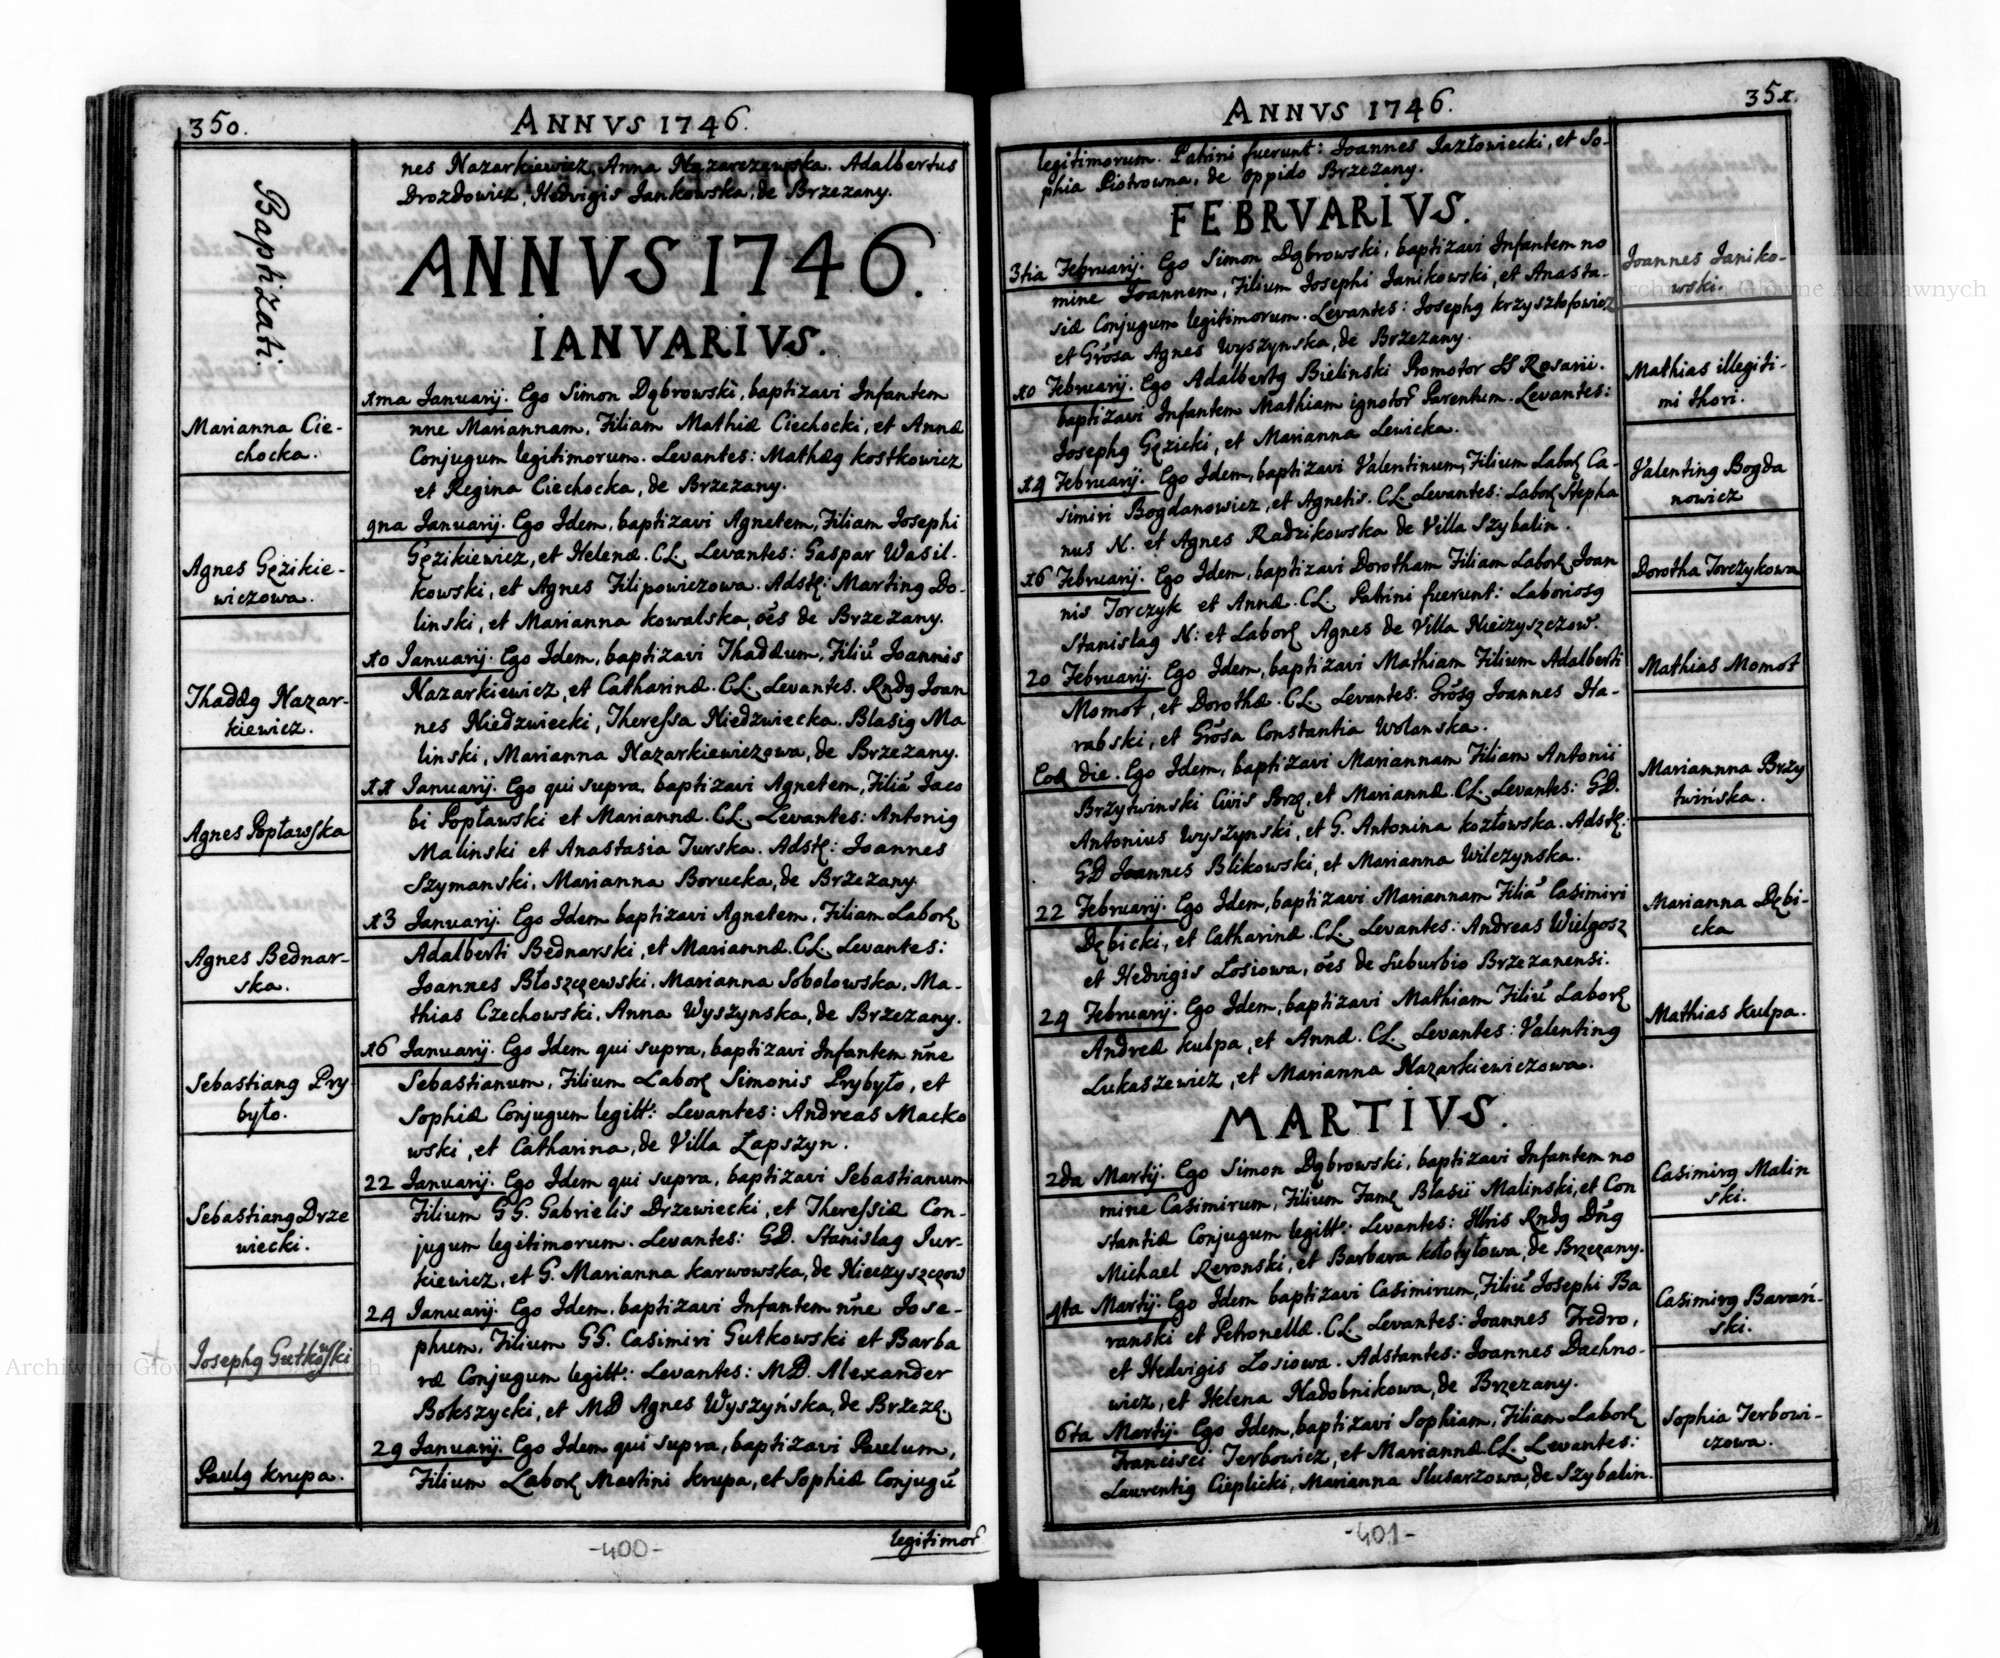 350.
ANNVS 1746.
Baptizati.
nes Nazarkiewicz, Anna Nazarczewska. Adalbertus
Drozdowicz, Hedvigis Jankowska, de Brzezany.
ANNVS 1746.
IANVARIVS.
Marianna Cie-
chocka.
1ma Januarij. Ego Simon Dąbrowski, baptizavi Infantem
nne Mariannam, Filiam Mathiæ Ciechocki, et Annæ
Conjugum legitimorum. Levantes: Mathæg Kostkowicz
et Regina Ciechocka, de Brzezany.
Agnes Gęzikie-
wiczowa.
9na Januarij. Ego Idem, baptizavi Agnetem, Filiam Josephi
Gęzikiewicz, et Helenæ. CL. Levantes: Gaspar Wasil-
kowski, et Agnes Filipowiczowa. Adstę: Marting Do-
linski, et Marianna Kowalska, oēs de Brzezany.
Thaddæg Nazar-
kiewicz.
10 Januarij. Ego Idem, baptizavi Thaddæum, Filiū Joannis
Nazarkiewicz, et Catharinæ. CL. Levantes. Rndg Joan
nes Niedzwiecki, Theressa Niedzwiecka. Blasig Ma
linski, Marianna Nazarkiewiczowa, de Brzezany.
Agnes Popławska
11 Januarij. Ego qui supra, baptizavi Agnetem, Filiā Jaco
bi Popławski et Mariannæ. CL. Levantes: Antonig
Malinski et Anastasia Turska. Adstę: Joannes
Szymanski, Marianna Borucka, de Brzezany.
Agnes Bednar-
ska.
13 Januarij. Ego Idem baptizavi Agnetem, Filiam Laborę
Adalberti Bednarski, et Mariannæ. CL. Levantes:
Joannes Błoszczewski, Marianna Sobolowska, Ma-
thias Czechowski, Anna Wyszynska, de Brzezany.
Sebastiang Pry-
było.
16 Januarij. Ego Idem qui supra, baptizavi Infantem nn̄e
Sebastianum, Filium Laborę Simonis Prybyło, et
Sophiæ Conjugum legitt: Levantes: Andreas Macko
wski, et Catharina, de Villa Łapszyn.
Sebastiang Drze
wiecki.
22 Januarij. Ego Idem qui supra, baptizavi Sebastianum
Filium GG. Gabrielis Drzewiecki, et Theressiæ Con-
jugum legitimorum. Levantes: GD. Stanislag Jur-
kiewicz, et G. Marianna Karwowska, de Nieczyszczow
Josephg Gutkowski
24 Januarij. Ego Idem, baptizavi Infantem nn̄e Jose-
phum, Filium GG. Casimiri Gutkowski et Barba
ræ Conjugum legitt: Levantes: MD. Alexander
Bokszycki, et MD Agnes Wyszyńska, de Brzezę.
Paulg Krupa.
29 Januarij. Ego Idem qui supra, baptizavi Paulum,
Filium Laborę Martini Krupa, et Sophiæ Conjugū
legitimor
-400-
ANNVS 1746.
351.
legitimorum. Patrini fuerunt: Joannes Jazłowiecki, et So-
phia Piotrowna, de oppido Brzezany.
FEBRVARIVS.
3tia Februarij. Ego Simon Dąbrowski, baptizavi Infantem no
mine Joannem, Filium Josephi Janikowski, et Anasta-
siæ Conjugum legitimorum. Levantes: Josephg Krzysztofowicz
et Grōsa Agnes Wyszynska, de Brzezany.
Joannes Janiko-
wski.
10 Februarij. Ego Adalbertg Bielinski Promotor SS Rosarii.
baptizavi Infantem Mathiam ignotor Parentum. Levantes:
Josephg Gęzicki, et Marianna Lewicka.
Mathias illegiti-
mi thori.
14 Februarij. Ego Idem, baptizavi Valentinum, Filium Laborę Ca-
simiri Bogdanowicz, et Agnetis. CL. Levantes: Laborę Stepha
nus N. et Agnes Radzikowska de Villa Szybalin.
Valenting Bogda
nowicz
16 Februarij. Ego Idem, baptizavi Dorotham Filiam Laborę Joan
nis Torczyk et Annæ. CL. Patrini fuerunt: Laboriosg
Stanislag N: et Laborę Agnes de Villa Nieczyszczow.
Dorotha Torczykowa
20 Februarij. Ego Idem, baptizavi Mathiam Filium Adalberti
Momot, et Dorothæ. CL. Levantes: Grōsg Joannes Ha-
rabski, et Grōsa Constantia Wolanska.
Mathias Momot
Eoą die. Ego Idem, baptizavi Mariannam Filiam Antonii
Brzytwinski Civis Brzę, et Mariannæ. CL. Levantes: GD.
Antonius Wyszynski, et G. Antonina Kozłowska. Adstę:
GD Joannes Blikowski, et Marianna Wilczynska.
Mariannna Brzy
twińska.
22 Februarij. Ego Idem, baptizavi Mariannam Filiā Casimiri
Dębicki, et Catharinæ. CL. Levantes: Andreas Wielgosz
et Hedvigis Łosiowa, oēs de Suburbio Brzezanensi.
Marianna Dębi-
cka
24 Februarij. Ego Idem, baptizavi Mathiam Filiū Laborę
Andreæ Kulpa, et Annæ. CL. Levantes: Valenting
Lukaszewicz, et Marianna Nazarkiewiczowa.
Mathias Kulpa.
MARTIVS.
2da Martij. Ego Simon Dąbrowski, baptizavi Infantem no
mine Casimirum, Filium Famę Blasii Malinski, et Con
stantiæ Conjugum legitt: Levantes: Rndg Dn̄g
Michael Rzronski, et Barbara Kołotyłowa, de Brzezany.
Casimirg Malin
ski.
4ta Martij. Ego Idem baptizavi Casimirum, Filiū Josephi Ba
ranski et Petronellæ. CL. Levantes: Joannes Fredro,
et Hedvigis Łosiowa. Adstantes: Joannes Dachno-
wicz, et Helena Nadobnikowa, de Brzezany.
Casimirg Barań-
ski.
6ta Martij. Ego Idem, baptizavi Sophiam, Filiam Laborę
Francisci Terbowicz, et Mariannæ CL. Levantes:
Laurentig Cieplicki, Marianna Slusarzowa, de Szybalin.
Sophia Terbowi-
czowa.
-401-
Archiwum Główne Akt Dawnych
Archiwum Główne Akt Dawnych